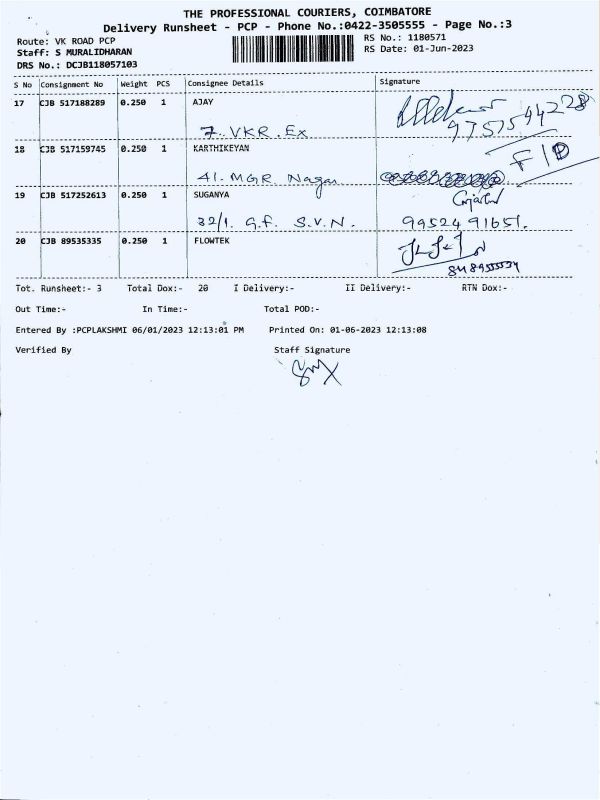 THE PROFESSIONAL COURIERS, COIMBATORE
Delivery Runsheet - PCP - Phone No.:0422-3505555 - Page No.:3
Route: VK ROAD PCP
RS No.: 1180571
Staff: S MURALIDHARAN
RS Date: 01-Jun-2023
DRS No.: DCJB118057103
S No Consignment No Weight PCS Consignee Details Signature
17 CJB 517188289 0.250 1 AJAY
7. VKR. Ex
18 CJB 517159745 0.250 1 KARTHIKEYAN
F/D
41. MGR Nagar
19 CJB 517252613 0.250 1 SUGANYA
32/1. G.f. S.V.N. 99524 91651.
20 CJB 89535335 0.250 1 FLOWTEK
Tot. Runsheet:- 3 Total Dox:- 20 I Delivery:- II Delivery:- RTN Dox:-
Out Time:- In Time:- Total POD:-
Entered By :PCPLAKSHMI 06/01/2023 12:13:01 PM Printed On: 01-06-2023 12:13:08
Verified By Staff Signature